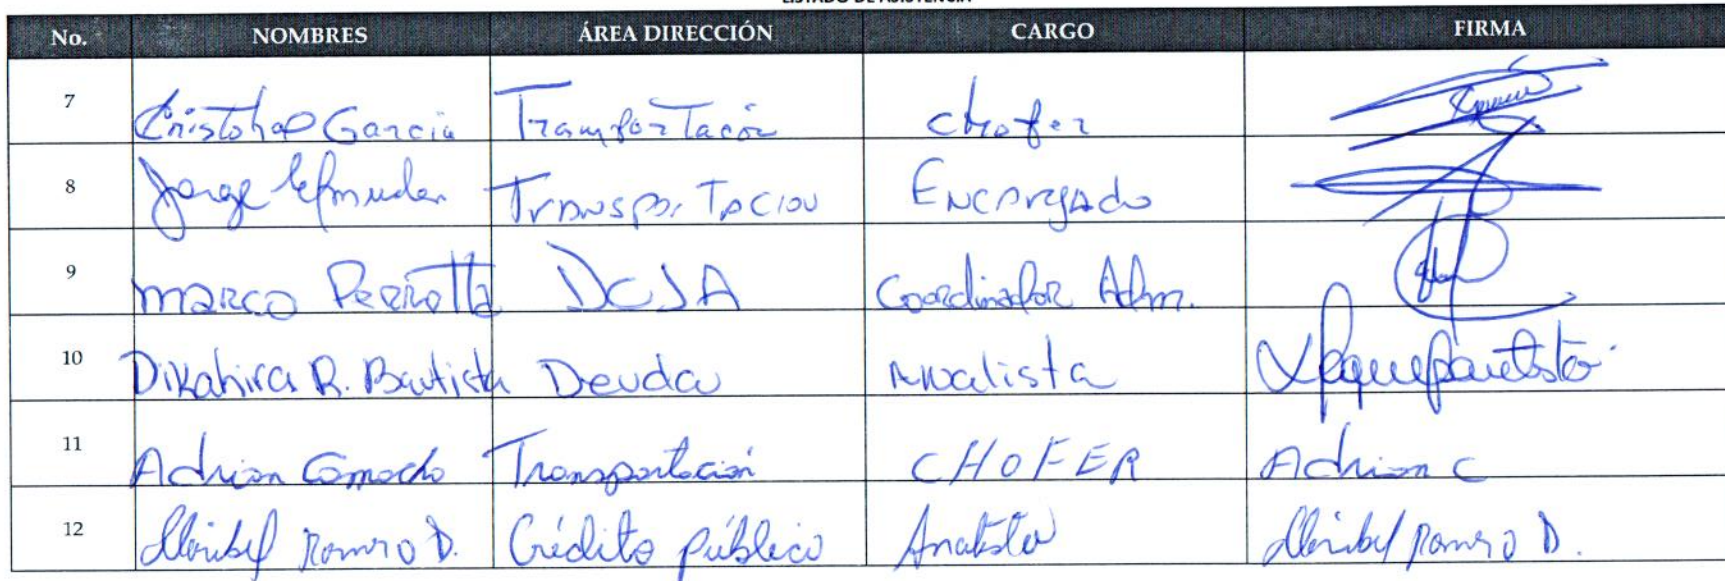 LISTADO DE ASISTENCIA
No. NOMBRES ÁREA DIRECCIÓN CARGO FIRMA
7 Cristobal Garcia Transportación chofer
8 Jorge Transportacion Encargado
9 Marco Perrotta DCJA Coordinador Adm.
10 Dikahira R. Bautista Deuda Analista
11 Adrian Camacho Transportación CHOFER Adrian C
12 Maribel Romero D. Crédito público Analista Maribel Romero D.